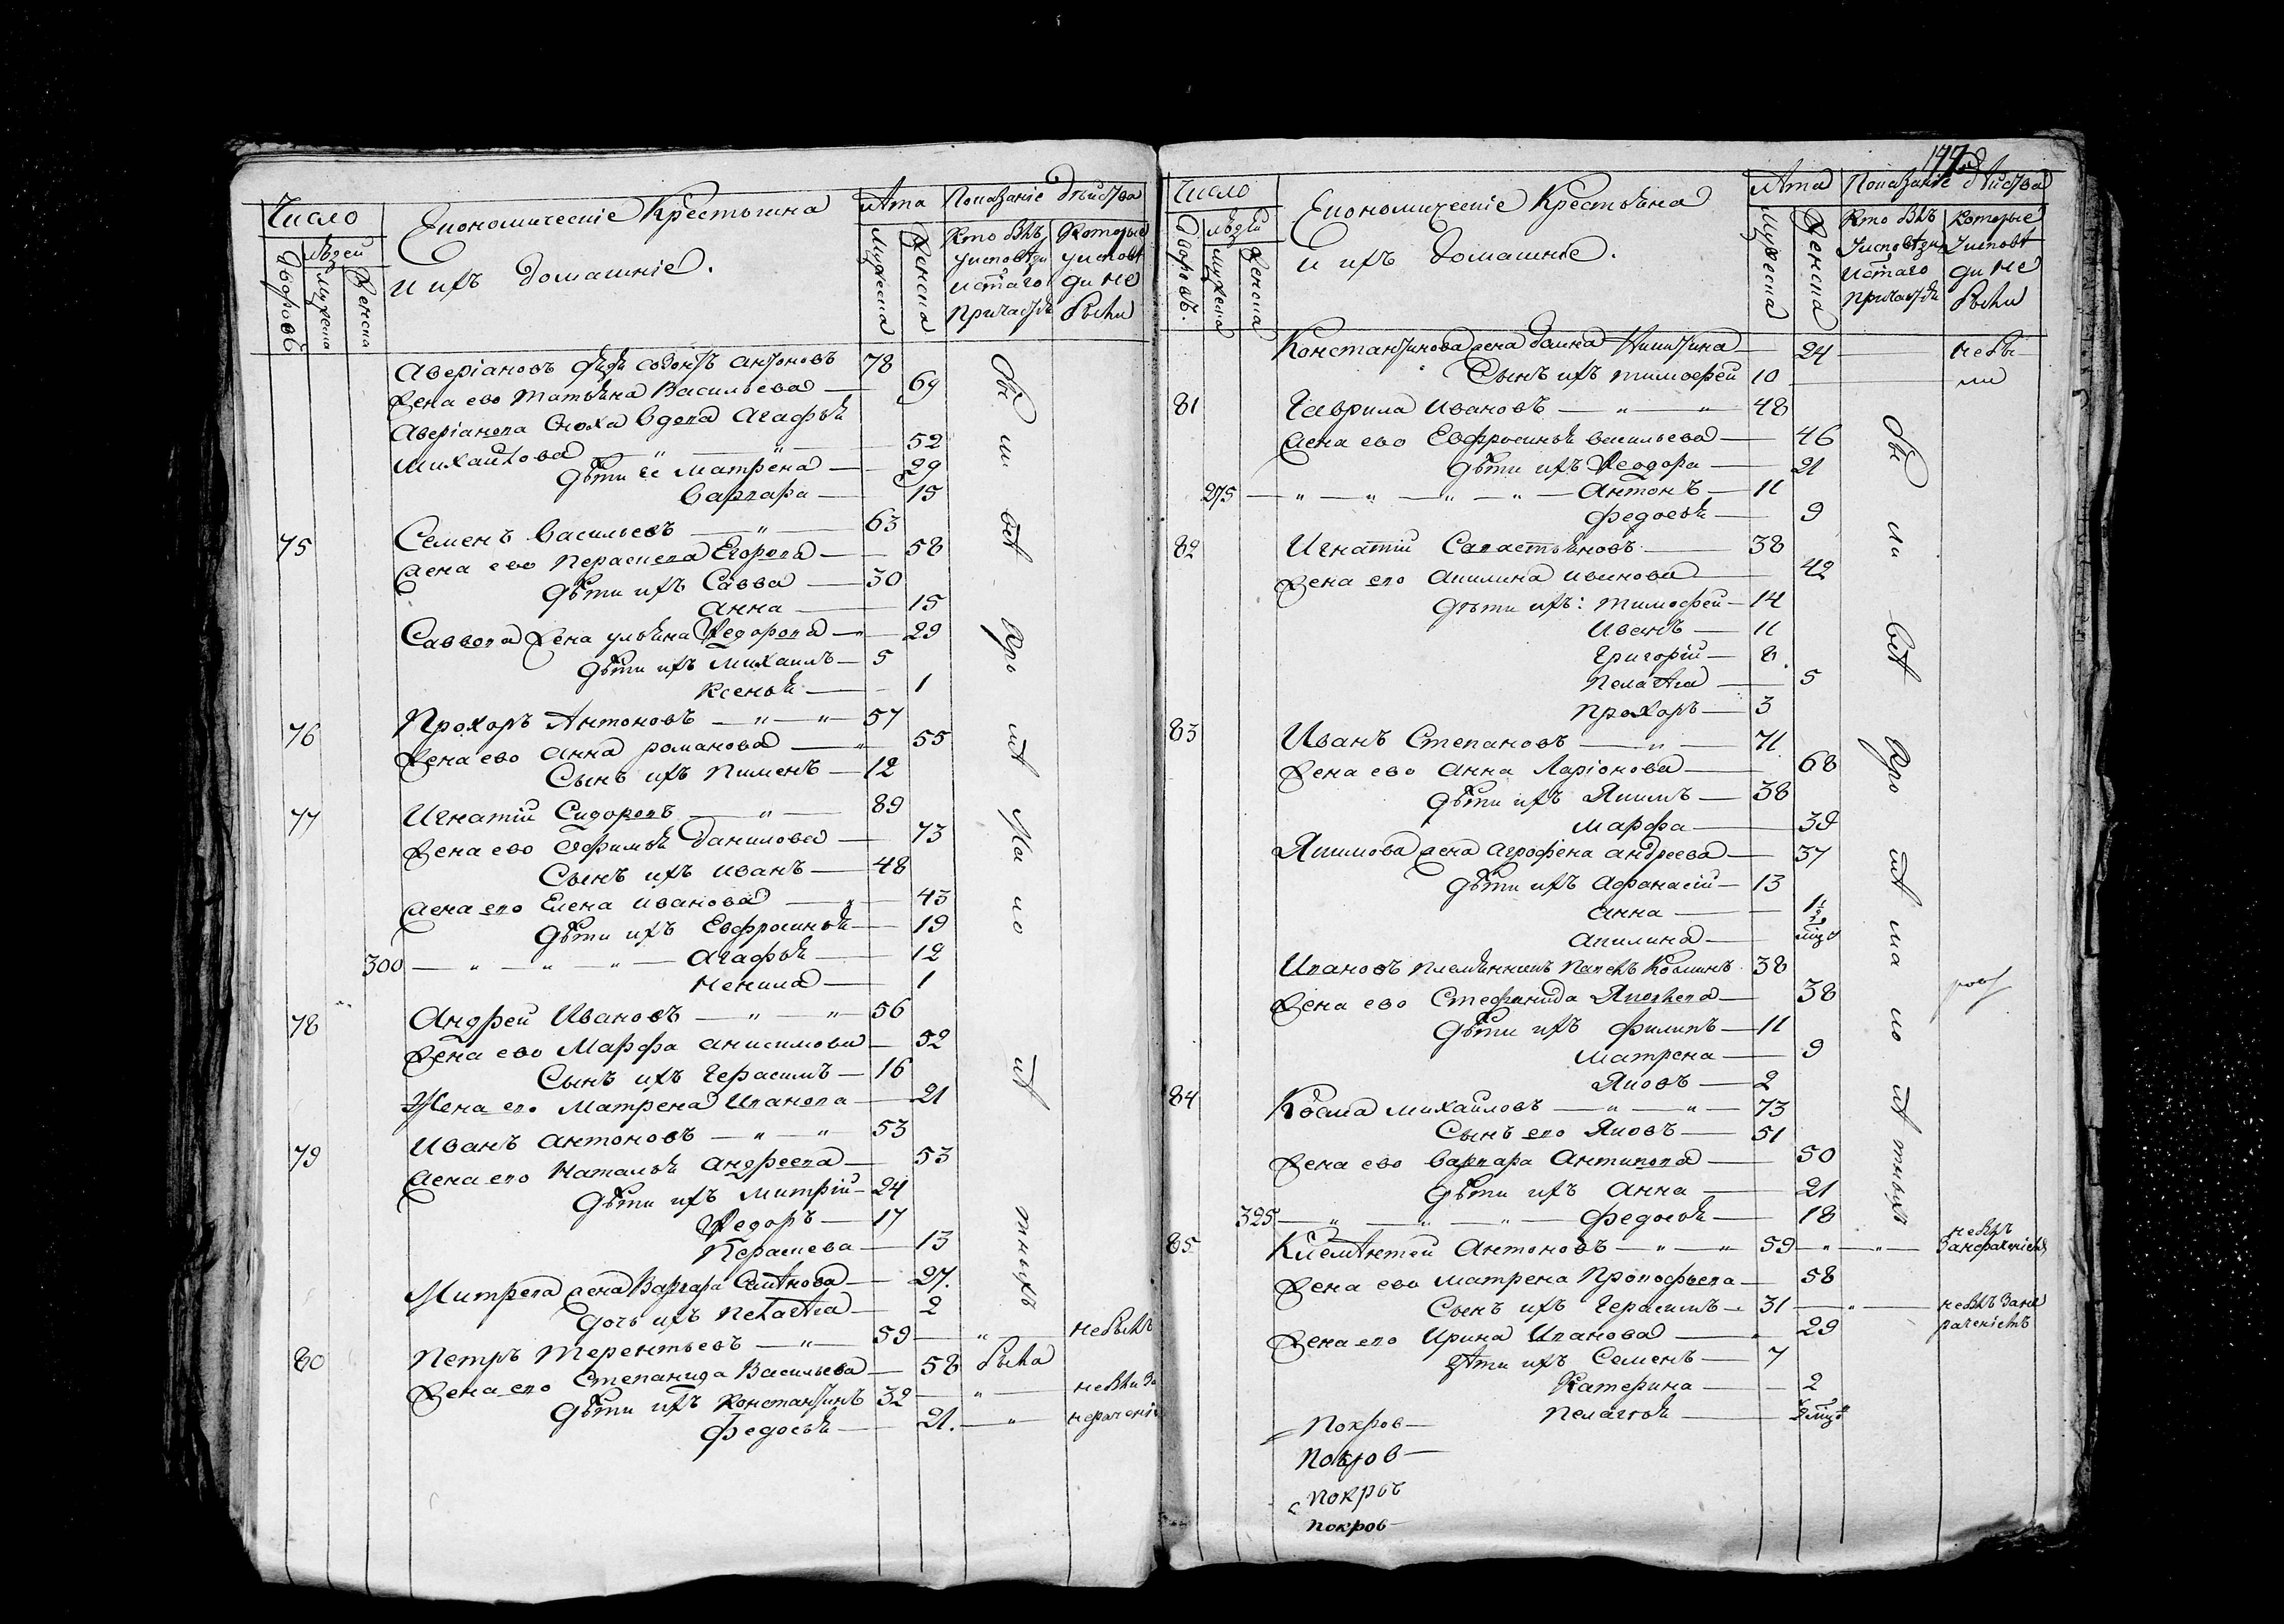 Число
Економическіе Крестьяна
и ихъ домашніе.
Лѣта
Показаніе дѣйства
дворовъ
людей
мужеска
женска
Мужеска
Женска
Кто былъ у исповѣди и стаго причастія
Которые у исповѣди не были
Аверіановъ дядя Антоновъ 78
Жена ево Татьяна Васильева — 69
Аверіанова сноха вдова Агафья
Михайлова — " — " — 52
Дѣти ее Матрена — 29
Варвара — 15
75 Семенъ Васильевъ — " — 63
Жена ево Параскева Егорова — 58
Дѣти ихъ Савва — 30
Анна — 15
Саввова жена Ульяна Ѳедорова — 29
Дѣти ихъ Михаилъ — 5
Ксенья — 1
76 Прохоръ Антоновъ — " — " — 57
Жена ево Анна Романова — " — 55
Сынъ ихъ Пименъ — 12
77 Игнатій Сидоровъ — " — 89
Жена ево Офимья Данилова — 73
Сынъ ихъ Иванъ — 48
Жена ево Елена Иванова — " — 43
Дѣти ихъ Евфросинья — 19
300 — " — " — " — Агафья — 12
Ненила — 1
78 Андрей Ивановъ — " — " — 56
Жена ево Марфа Анисимова — 52
Сынъ ихъ Герасимъ — 16
Жена ево Матрена Иванова — 21
79 Иванъ Антоновъ — " — " — 53
Жена ево Наталья Андреева — 53
Дѣти ихъ Митрій — 24
Ѳедоръ — 17
Параскева — 13
Митрева жена Варвара Семенова — 27.
Дочь ихъ Пелагея — 2
80 Петръ Терентьевъ — " — 59 — " — не былъ
Жена ево Степанида Васильева — 58 была
Дѣти ихъ Константинъ 32 — " — не были за
Федосья — 21. — " — нераченіе
бы ли всѣ Про шѣ на ис
Число
Економическіе Крестьяна
и ихъ домашніе.
Лѣта
Показаніе дѣйства
дворовъ.
людей
мужеска
женска
Мужеска
Женска
Кто былъ у исповѣди и стаго причастія
Которые у исповѣди не были
Константинова жена Никитина — 24 — не бы
Сынъ ихъ Тимофей 10 — ли
81 Гаврила Ивановъ — " — " 48
Жена ево Евфросинья Васильева — 46
Дѣти ихъ Ѳеодора — 21
275 — " — " — " — " — Антонъ — 11
Федосья — 9
82 Игнатій Савастьяновъ — 38
Жена ево Акилина Иванова — 42
Дѣти ихъ: Тимофей — 14
Иванъ — 11
Григорій — 8.
Пелагея — 5
Прохоръ — 3
83 Иванъ Степановъ — " — 71
Жена ево Анна Ларіонова — 68
Дѣти ихъ Якимъ — 38
Марфа — 39
Якимова жена Агрофена Андреева — 37
Дѣти ихъ Афанасій — 13
Анна — 1½
Акилина —
Ивановъ племянникъ Павелъ Козминъ 38
Жена ево Стефанида Яковлева — 38
Дѣти ихъ Филипъ — 11
Матрена — 9
Яковъ — 2
84 Козма Михайловъ — " — " — 73
Сынъ ево Яковъ — 51
Жена ево Варвара Антипова — 50
Дѣти ихъ Анна — 21
325 — " — " — " — Федосья — 18
85 Климентей Антоновъ — " — " 59 — " — " — не былъ за нераченіемъ
Жена ево Матрена Прокофьева — 58
Сынъ ихъ Герасимъ — 31 — " — не былъ за не
раченіемъ
Жена ево Ирина Иванова — 29
Дѣти ихъ Семенъ — 7
Катерина — 2
Пелагея —
бы ли всѣ Про шѣ на ис
Покров—
Покров—
Покръв
Покров—